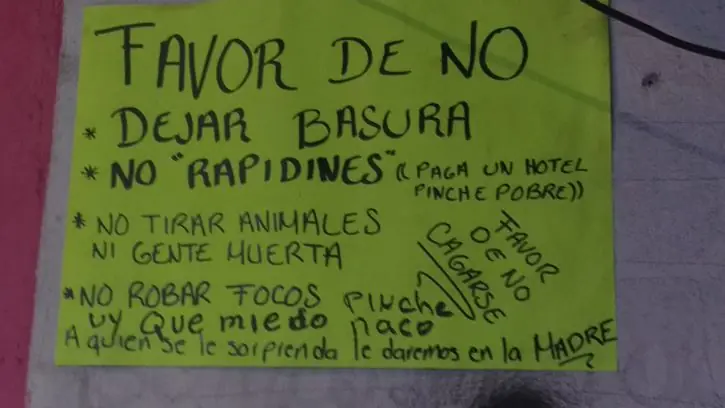 FAVOR DE NO
* DEJAR BASURA
* NO "RAPIDINES" ((PAGA UN HOTEL
PINCHE POBRE))
* NO TIRAR ANIMALES
NI GENTE MUERTA
FAVOR
DE NO
CAGARSE
* NO ROBAR FOCOS PINCHE
UY QUE MIEDO NACO
A quien se le sorprenda le daremos en la MADRE